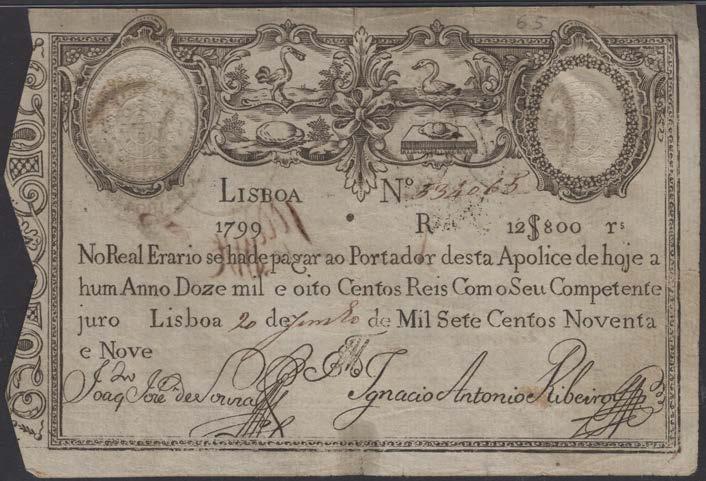 65
LISBOA Nº 534065
1799 R 12$800 rs
No Real Erario se ha de pagar ao Portador desta Apolice de hoje a
hum Anno Doze mil e oito Centos Reis Com o Seu Competente
juro Lisboa 20 de Junho de Mil Sete Centos Noventa
e Nove
Joaqm José de Souza Ignacio Antonio Ribeiro